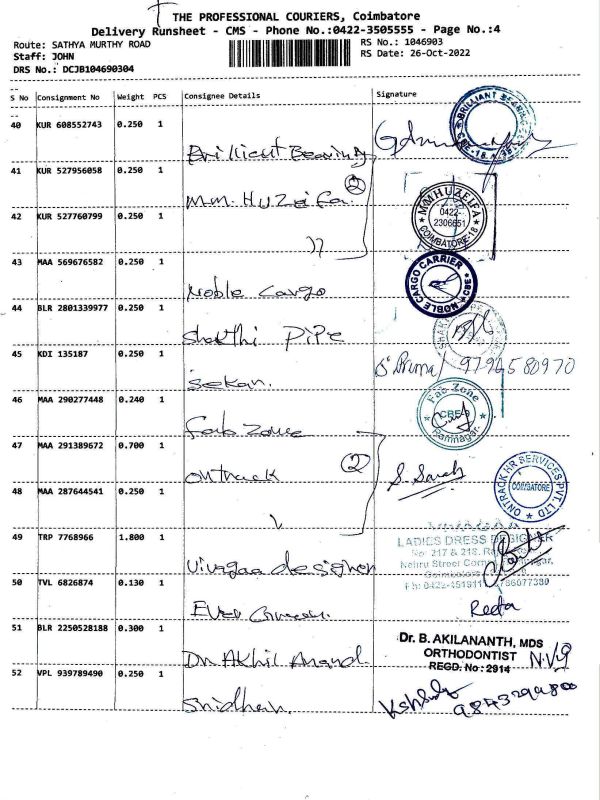 THE PROFESSIONAL COURIERS, Coimbatore
Delivery Runsheet - CMS - Phone No.:0422-3505555 - Page No.:4
Route: SATHYA MURTHY ROAD
RS No.: 1046903
Staff: JOHN
RS Date: 26-Oct-2022
DRS No.: DCJB104690304
S No Consignment No Weight PCS Consignee Details Signature
40 KUR 608552743 0.250 1
Brillient Bearing
BRILLIANT
41 KUR 527956058 0.250 1
M.M. HUZeifa
2
MM HUZEIFA
0422-
2306651
COIMBATORE-18
42 KUR 527760799 0.250 1
43 MAA 569676582 0.250 1
Noble Cargo
NOBLE CARGO CARRIER CBE
44 BLR 2801339977 0.250 1
Shakthi PiPe
45 KDI 135187 0.250 1
Sekan.
9796580970
46 MAA 290277448 0.240 1
Fab Zone
Fab Zone
CBE
Ramnagar.
47 MAA 291389672 0.700 1
Ontrack
2
S. Sarah
ONTRACK HR SERVICES PVT. LTD
COIMBATORE
48 MAA 287644541 0.250 1
49 TRP 7768966 1.800 1
Viragaa designer
LADIES DRESS DESIGNER
No: 217 & 218,
Nehru Street
50 TVL 6826874 0.130 1
Ever Green.
Reeta
51 BLR 2250528188 0.300 1
Dr. Akhil Anand.
Dr. B. AKILANANTH, MDS
ORTHODONTIST
REGD. No : 2914
52 VPL 939789490 0.250 1
Sridhar.